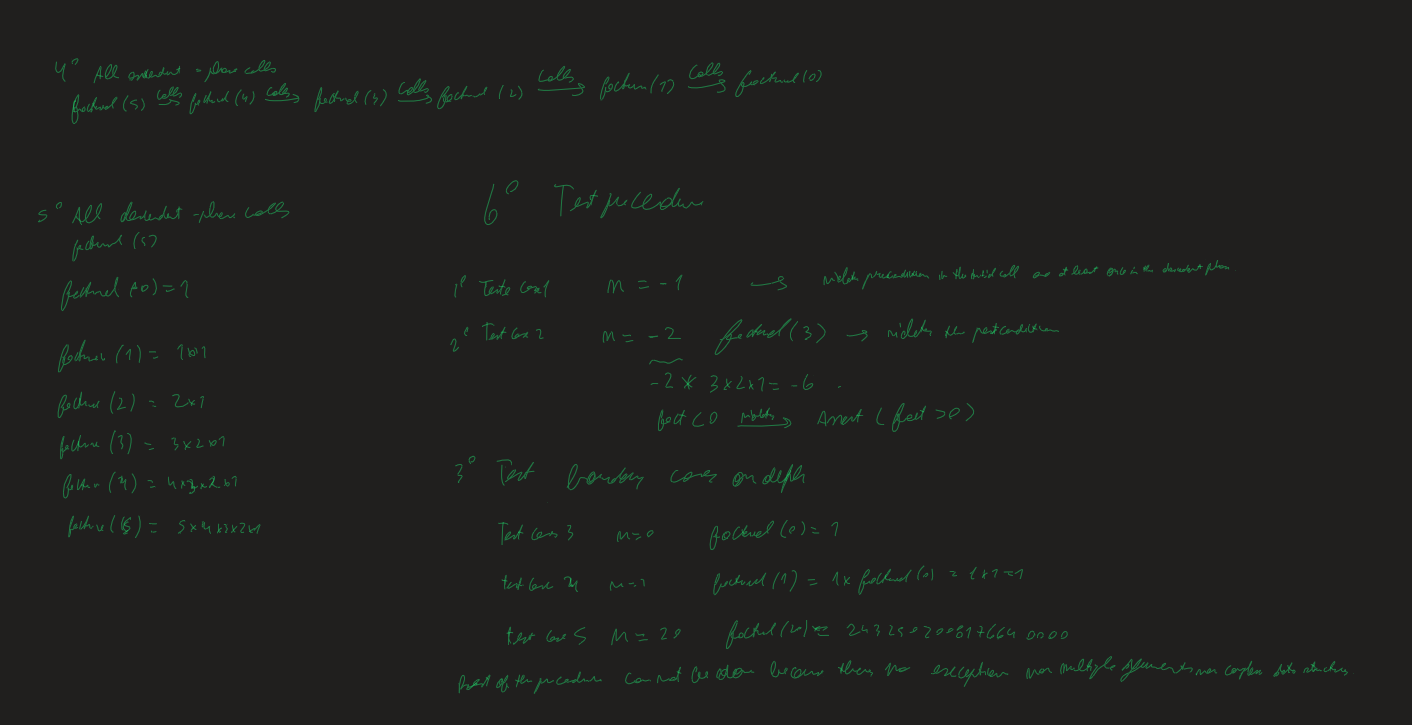 4° All - phase calls
factorial (5) calls → factorial (4) calls → factorial (3) calls → factorial (2) calls → factorial (1) calls → factorial (0)
5° All -phase calls
factorial (5)
factorial (0) = 1
factorial (1) = 1
factorial (2) = 2×1
factorial (3) = 3×2×1
factorial (4) = 4×3×2×1
factorial (5) = 5×4×3×2×1
6° Test procedure
1° Teste case 1 n = -1 → violates precondition in the initial call and at least once in the descendent phase.
2° Test case 2 n = -2 factorial (3) → violates the postcondition
-2 * 3×2×1 = -6 .
fact < 0 violates → Assert ( fact > 0 )
3° Test boundary cases on depth
Test case 3 n=0 factorial (0) = 1
test case 4 n=1 factorial (1) = 1× factorial (0) = 1×1 = 1
test case 5 n = 20 factorial (20) = 2432902008176640000
Rest of the procedure can not be done because there's no exception nor multiple arguments nor complex data structures